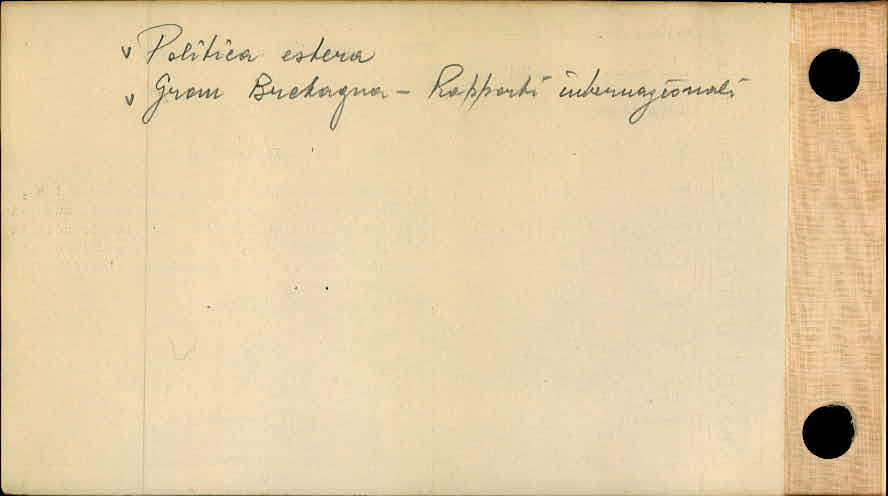 v Politica estera
v Gran Bretagna - Rapporti internazionali